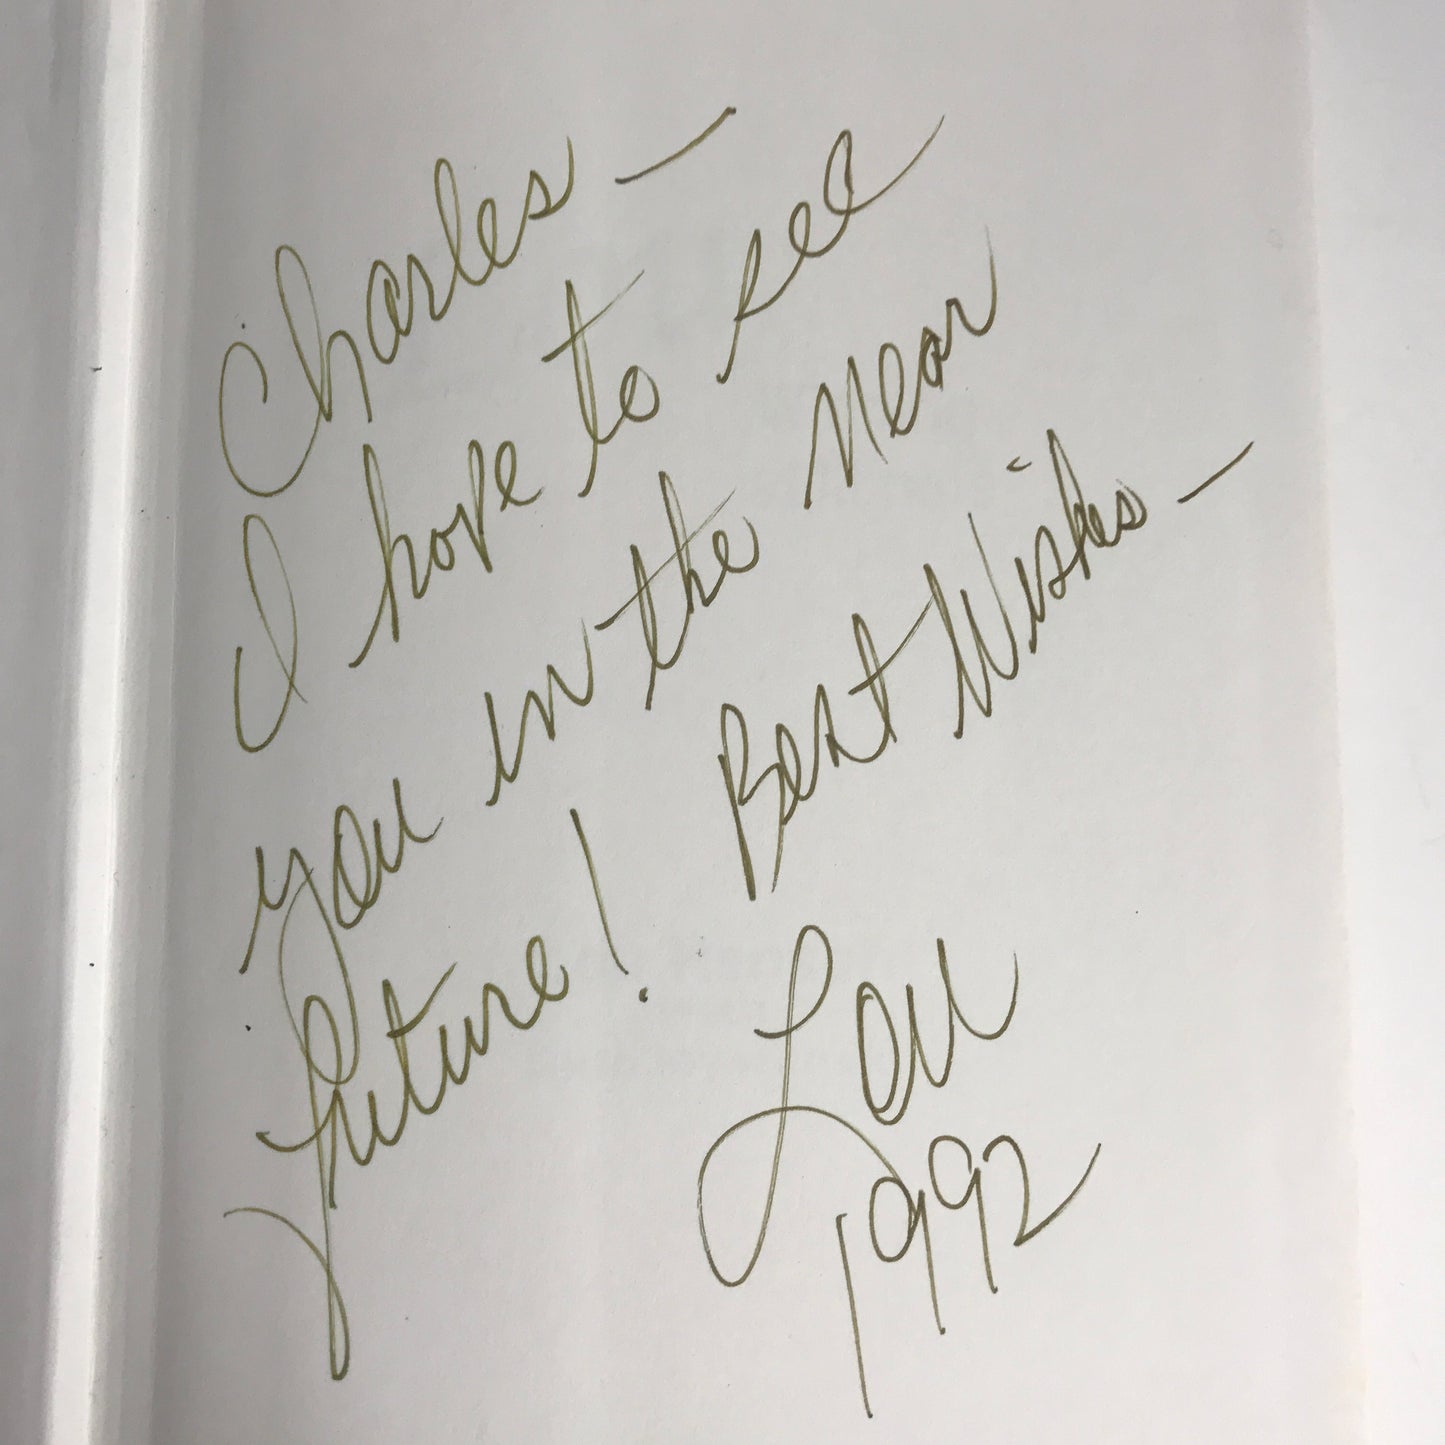 Charles —
I hope to see
you in the near
future! Best Wishes —
Lou
1992